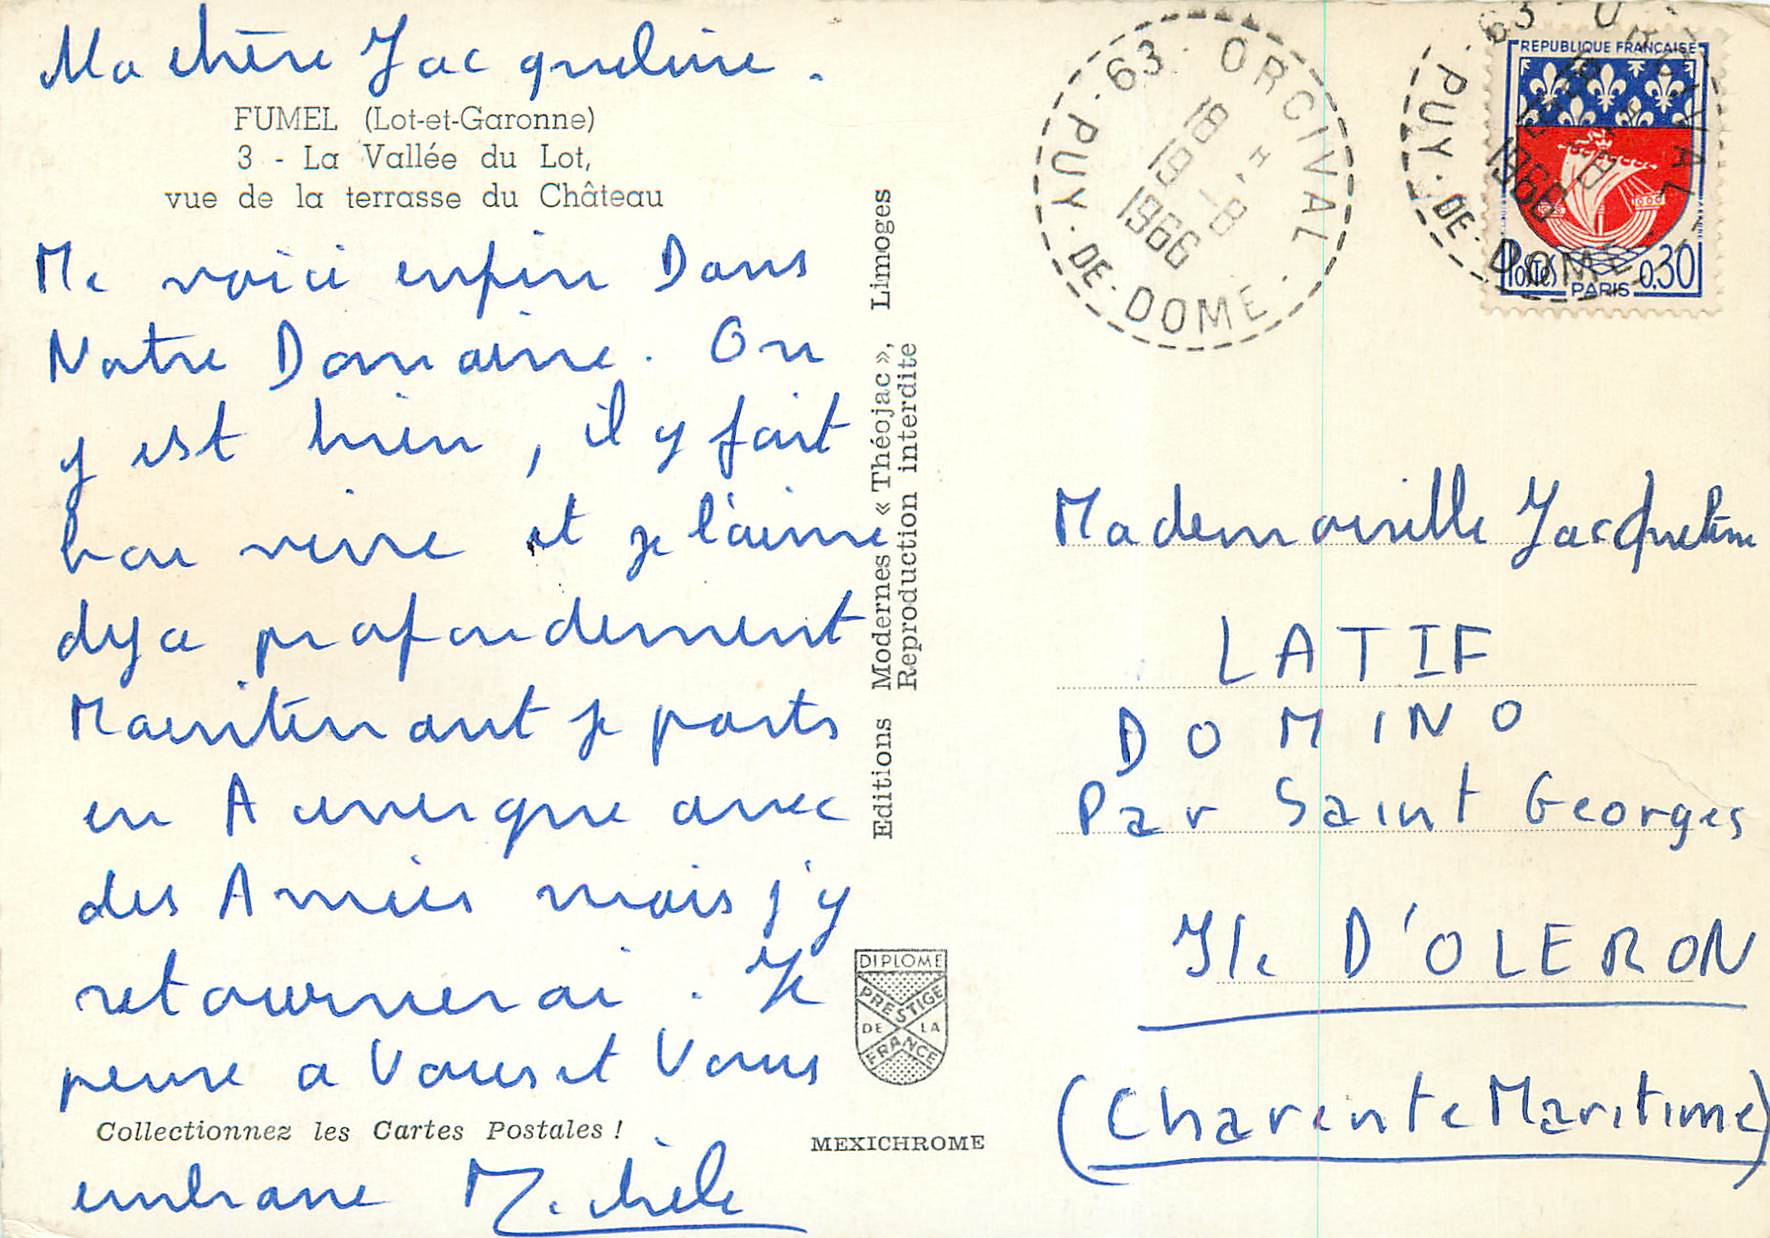 Ma chère Jacqueline.
FUMEL (Lot-et-Garonne)
3 - La Vallée du Lot,
vue de la terrasse du Château
Me voici enfin Dans
Notre Domaine. On
y est bien, il y fait
bon vivre et je l'aime
deja profondement
Maintenant je parts
en Auvergne avec
des Amies mais j'y
retournerai. Je
pense a Vous et Vous
Collectionnez les Cartes Postales !
embrasse Michèle
Editions Modernes « Théojac », Limoges
Reproduction interdite
DIPLOME
PRESTIGE
DE LA
FRANCE
MEXICHROME
63 - ORCIVAL
PUY-DE-DOME
18 H
19 -8
1966
63 - ORCIVAL
PUY-DE-DOME
18 H
19 -8
1966
REPUBLIQUE FRANÇAISE
POSTES 0,30
PARIS
Mademoiselle Jacqueline
LATIF
DOMINO
Par Saint Georges
Ile D'OLERON
(Charente Maritime)